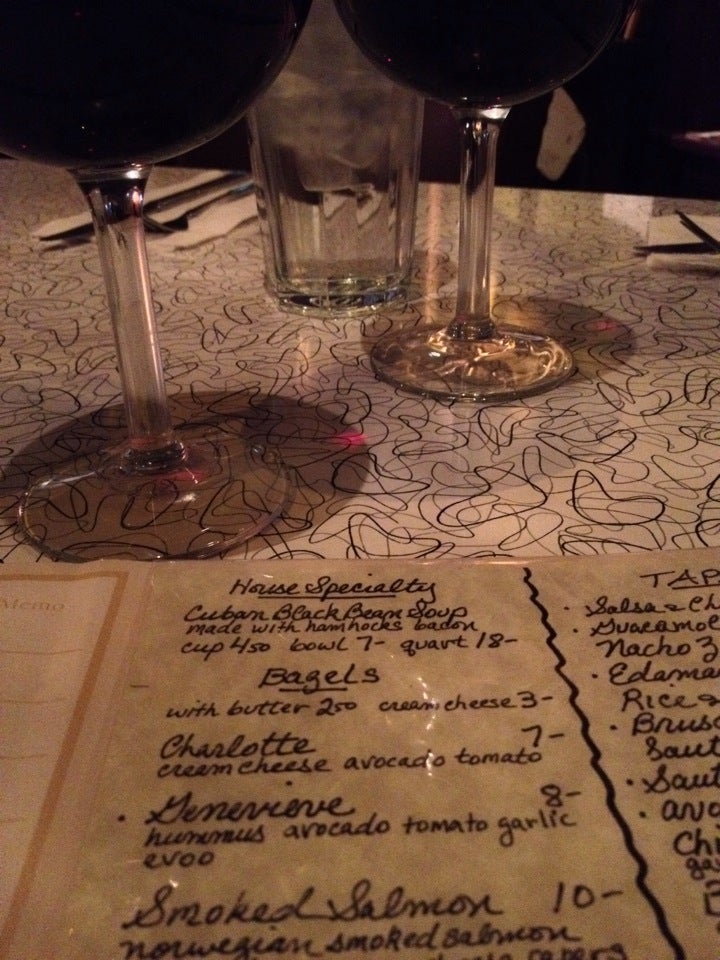 Memo
House Specialty
Cuban Black Bean Soup
made with hamhocks bacon
cup 450 bowl 7- quart 18-
Bagels
with butter 250 cream cheese 3-
Charlotte 7-
cream cheese avocado tomato
• Genevieve 8-
hummus avocado tomato garlic
evoo
Smoked Salmon 10-
norwegian smoked salmon
capers
TAP
• Salsa & Ch
• Guacamol
Nacho
• Edama
Rice &
• Brus
Saut
• Saut
• avo
Chi
ga